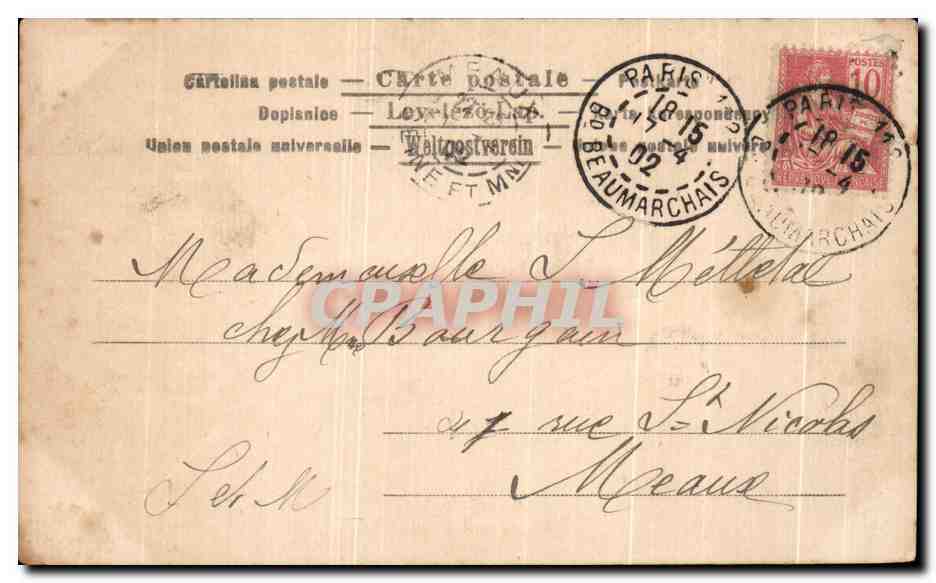 Cartolina postale — Carte postale —
Dopisnice — Levelező-Lap. —
Union postale universelle — Weltpostverein —
PARIS 112
18 15
17 - 4
02
BD BEAUMARCHAIS
POSTES
10
PARIS 112
18 15
BEAUMARCHAIS
CPAPHIL
Mademoiselle L. Méttetal
chez Mme Bourgoin
47 rue St Nicolas
S et M Meaux